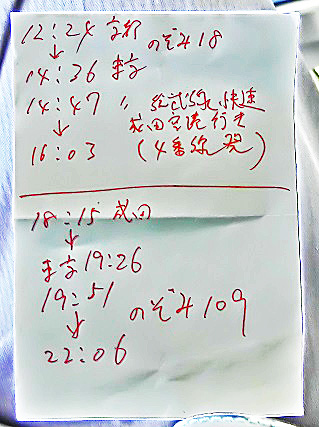 12:24 京都 のぞみ18
↓
14:36 東京
14:47 〃 総武線快速
↓ 成田空港行き
16:03 (4番線発)
18:15 成田
↓
東京 19:26
19:51 のぞみ109
↓
22:06